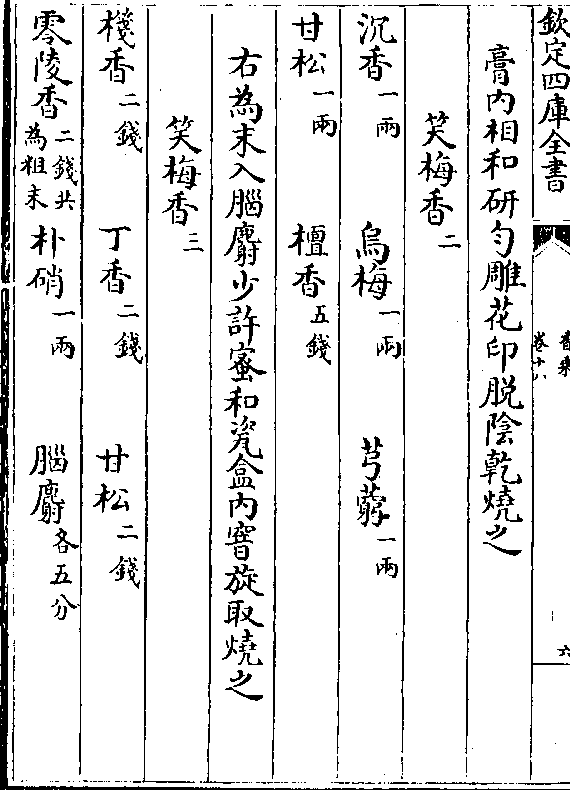 欽定四庫全書
香乘
卷十八
六
膏内相和研勻雕花印脱陰乾燒之
笑梅香二
沉香一兩　烏梅一兩　芎藭一兩
甘松一兩　檀香五錢
右為末入腦麝少許蜜和瓷盒内窨旋取燒之
笑梅香三
棧香二錢　丁香二錢　甘松二錢
零陵香二錢共為粗末　朴硝一兩　腦麝各五分